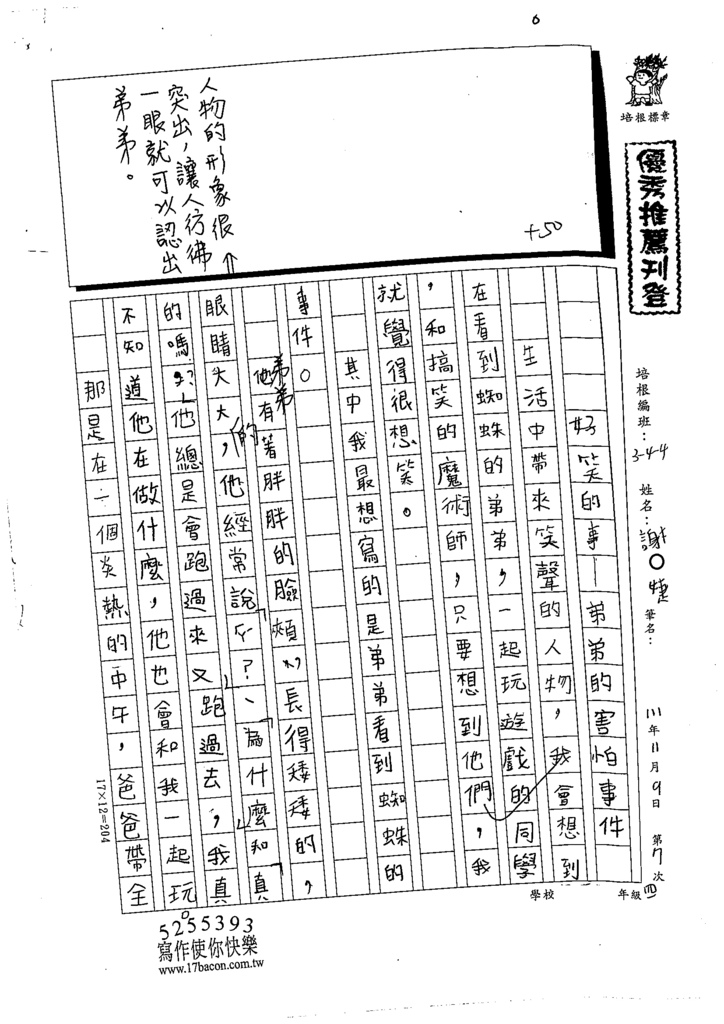 培根標章
優秀推薦刊登
培根編班：3-4-4 姓名：謝○婕 筆名：
111年11月9日 第7次
學校 年級 四
+50
人物的形象很
突出，讓人彷彿
一眼就可以認出
弟弟。
好笑的事—弟弟的害怕事件
生活中帶來笑聲的人物，我會想到
在看到蜘蛛的弟弟，一起玩遊戲的同學
，和搞笑的魔術師，只要想到他們，我
就覺得很想笑。
其中我最想寫的是弟弟看到蜘蛛的
事件。
弟弟
他有著胖胖的臉頰，長得矮矮的，
眼睛大大的，他經常說「ㄅㄟ？」、「為什麼知」「真
的嗎？」他總是會跑過來又跑過去，我真
不知道他在做什麼，他也會和我一起玩。
那是在一個炎熱的中午，爸爸帶全
17×12=204
5255393
寫作使你快樂
www.17bacon.com.tw